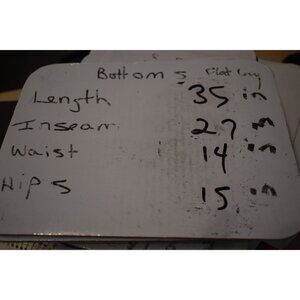 Bottoms Flat Lay
Length 35 in
Inseam 27 in
Waist 14 in
Hips 15 in